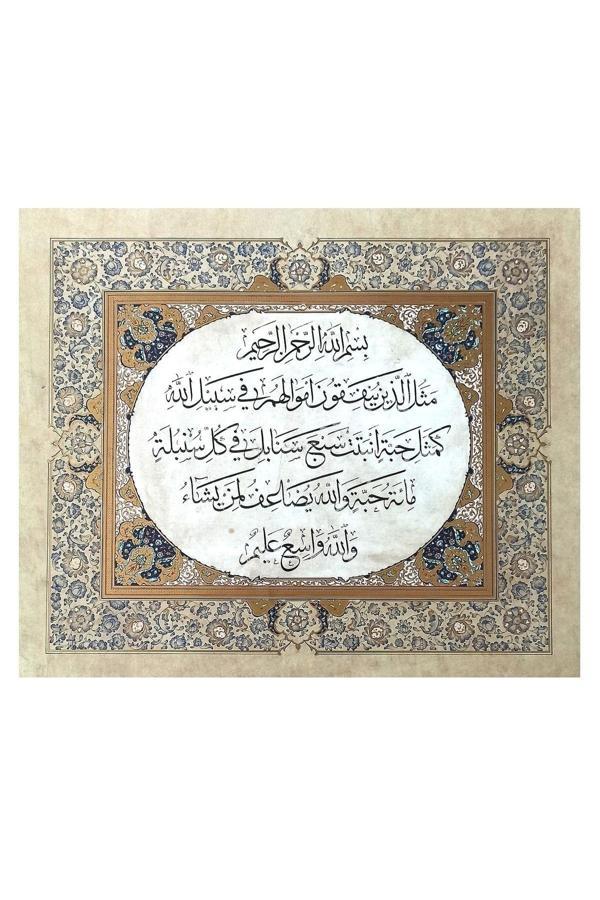 بسم الله الرحمن الرحيم
مثل الذين ينفقون أموالهم في سبيل الله
كمثل حبة أنبتت سبع سنابل في كل سنبلة
مائة حبة والله يضاعف لمن يشاء
والله واسع عليم